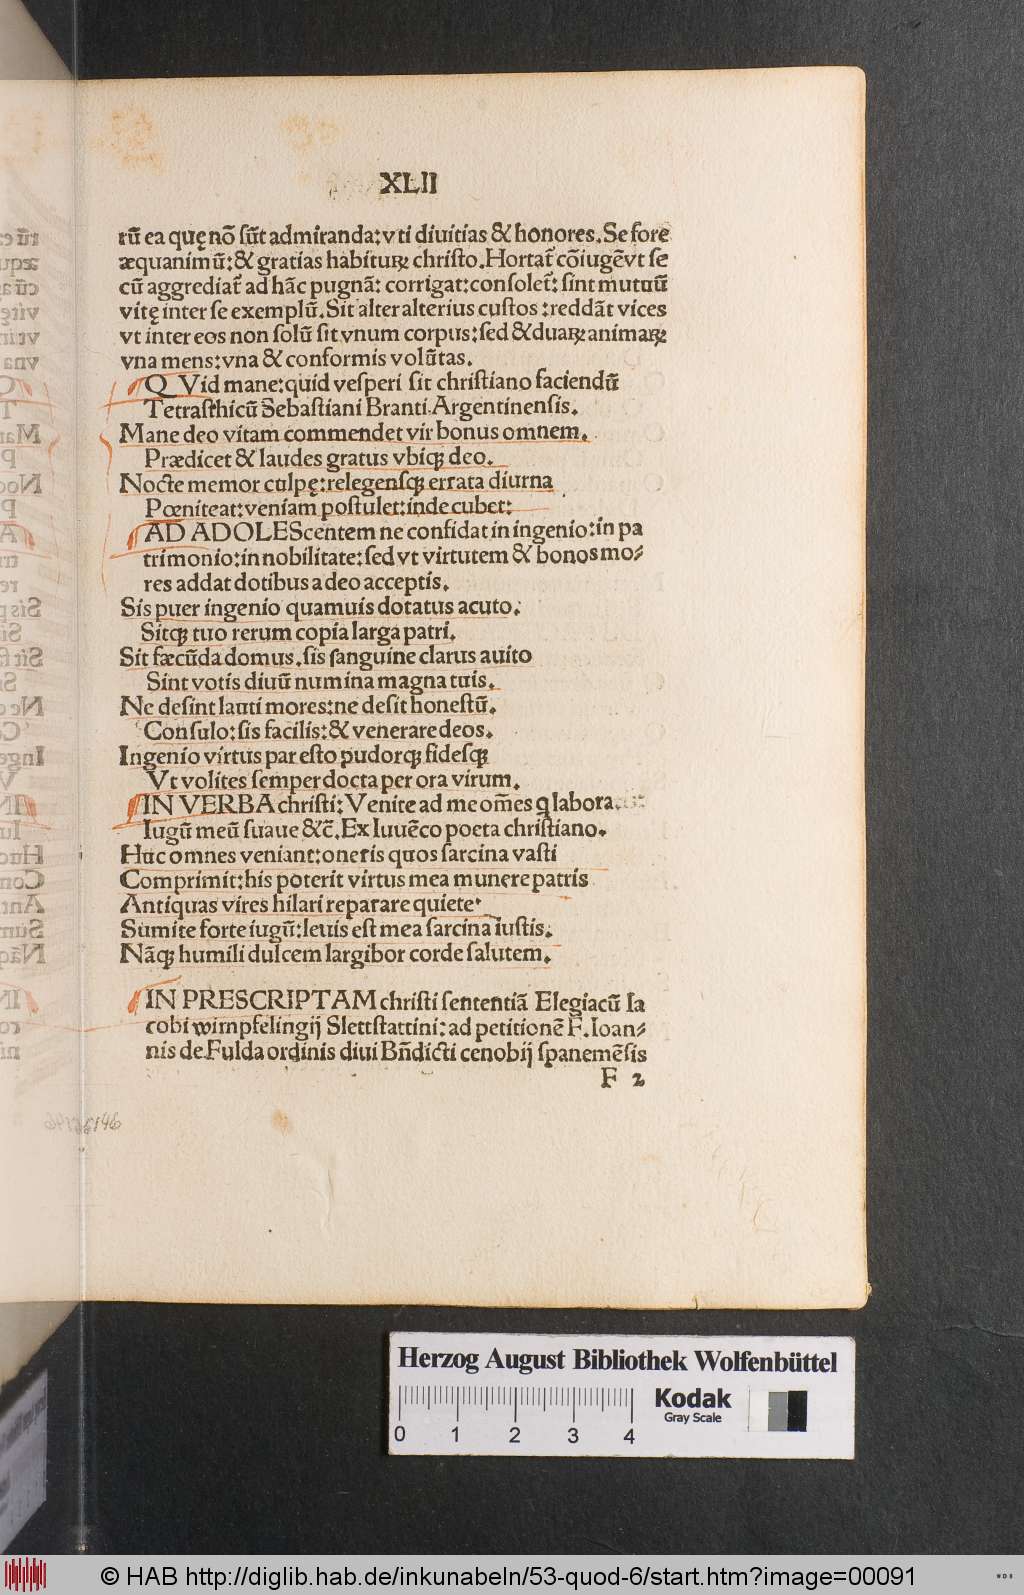 XLII
rū ea quę nō sūt admiranda: vti diuitias & honores. Se fore
æquanimū: & gratias habituꝝ christo. Hortat̄ cōiugē vt se
cū aggrediat̄ ad hāc pugnā: corrigat: consolet̄: sint mutuū
vitę inter se exemplū. Sit alter alterius custos: reddāt vices
vt inter eos non solū sit vnum corpus: sed & duaꝝ animaꝝ
vna mens: vna & conformis volūtas.
QVid mane: quid vesperi sit christiano faciendū
Tetrasthicū Sebastiani Branti. Argentinensis.
Mane deo vitam commendet vir bonus omnem.
Prædicet & laudes gratus vbiqꝫ deo.
Nocte memor culpę: relegensqꝫ errata diurna
Pœniteat: veniam postulet: inde cubet:
AD ADOLEScentem ne confidat in ingenio: in pa
trimonio: in nobilitate: sed vt virtutem & bonos mo⸗
res addat dotibus a deo acceptis.
Sis puer ingenio quamuis dotatus acuto:
Sitqꝫ tuo rerum copia larga patri.
Sit fæcūda domus. sis sanguine clarus auito
Sint votis diuū numina magna tuis.
Ne desint lauti mores: ne desit honestū.
Consulo: sis facilis: & venerare deos.
Ingenio virtus par esto pudorqꝫ fidesqꝫ
Vt volites semper docta per ora virum.
IN VERBA christi: Venite ad me om̄es q labora.
Iugū meū suaue &c̄. Ex Iuuēco poeta christiano.
Huc omnes veniant: oneris quos sarcina vasti
Comprimit: his poterit virtus mea munere patris
Antiquas vires hilari reparare quiete
Sumite forte iugū: leuis est mea sarcina iustis.
Nāqꝫ humili dulcem largibor corde salutem.
IN PRESCRIPTAM christi sententiā Elegiacū Ia
cobi wimpfelingij Slettstattini: ad petitionē F. Ioan⸗
nis de Fulda ordinis diui Bn̄dicti cenobij spanemēsis
F 2
Herzog August Bibliothek Wolfenbüttel
Kodak
Gray Scale
0 1 2 3 4
© HAB http://diglib.hab.de/inkunabeln/53-quod-6/start.htm?image=00091